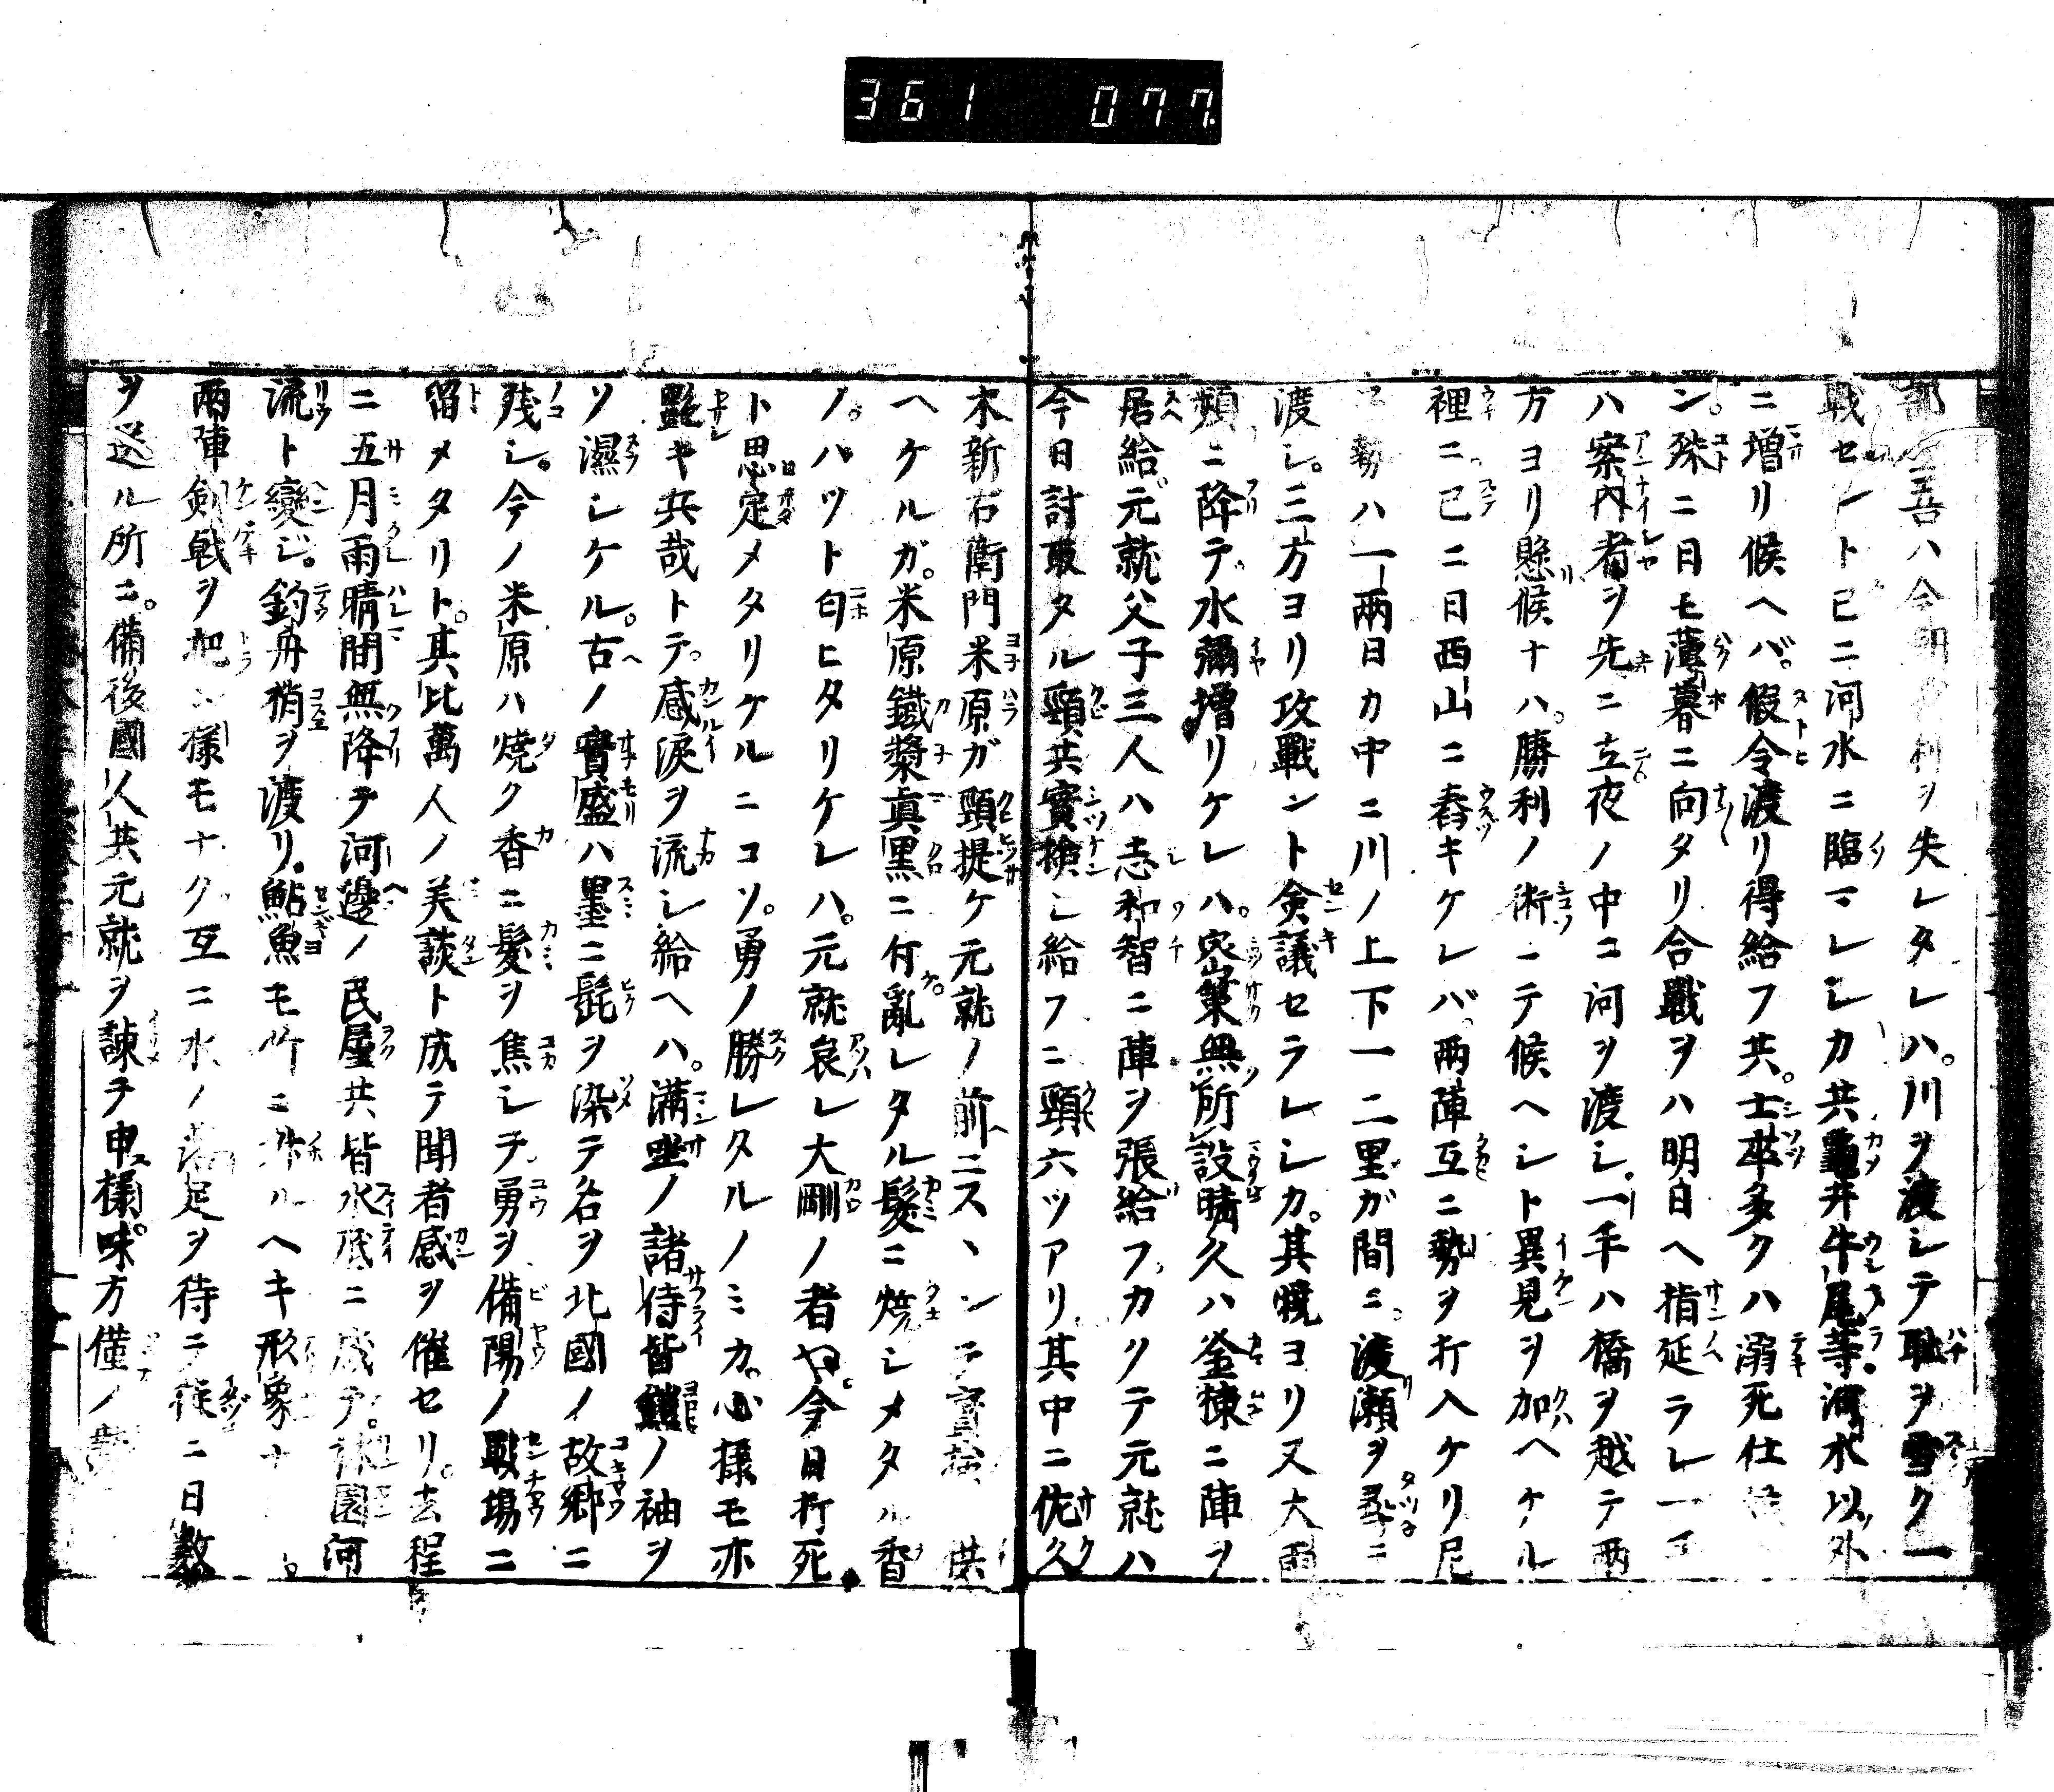 361 077.
吾ハ今朝利ヲ失レタレハ。川ヲ渡シテ耻ヲ雪ク一
戦セントセニ河水ニ臨マレレカ共龜井牛尾等。河水以外
ニ増リ候ヘバ。假令渡リ得給フ共。士卒多クハ溺死仕
ン。殊ニ日モ薄暮ニ向タリ合戰ヲハ明日ヘ指延ラレ一
ハ案内者ヲ先ニ立夜ノ中ニ河ヲ渡シ。一手ハ橋ヲ越テ両
方ヨリ懸候ナハ。勝利ノ術ニテ候ヘシト異見ヲ加ヘケル
裡ニ已ニ日西山ニ舂キケレバ。両陣互ニ勢ヲ打入ケリ尼
勢ハ一両日カ中ニ川ノ上下一二里ガ間ニ。渡瀬ヲ尋ニ
渡シ。三方ヨリ攻戰ント僉議セラレシカ。其暁ヨリ又大雨
頻ニ降テ。水彌増リケレハ。密策無所設晴久ハ釜棟ニ陣ヲ
居給。元就父子三人ハ志和智ニ陣ヲ張給フ。カクテ元就ハ
今日討取タル頸共實検シ給フニ頸六ツアリ。其中ニ佐久
木新右衛門米原ガ頸提ケ元就ノ前ニスヽンテ實検供
ヘケルガ。米原鐵漿眞黒ニ付亂レタル髮ニ焼シメタル香
ノ。ハツト匂ヒタリケレハ。元就哀レ大剛ノ者や。今日打死
ト思定メタリケルニコソ。勇ノ勝レタルノミカ。心様モ亦
艶キ兵哉トテ。感涙ヲ流シ給ヘハ。満坐ノ諸侍皆鎧ノ袖ヲ
ソ濕シケル。古ノ實盛ハ墨ニ髭ヲ染テ名ヲ北國ノ故郷ニ
殘シ。今ノ米原ハ焼ク香ニ髮ヲ焦シテ勇ヲ備陽ノ戰場ニ
留メタリト。其比萬人ノ美談ト成テ聞者感ヲ催セリ。去程
ニ五月雨晴間無降テ河邊ノ民屋共皆水底ニ成テ。田園河
流ト變ジ。釣舟梢ヲ渡リ。鮎魚モ竹ニ升ルヘキ形象ナ
両陣剣戟ヲ把ン様モナク。互ニ水ノ落足ヲ待ニ徒ニ日數
ヲ送ル所ニ。備後國人共元就ヲ諌テ申様。味方僅ノ